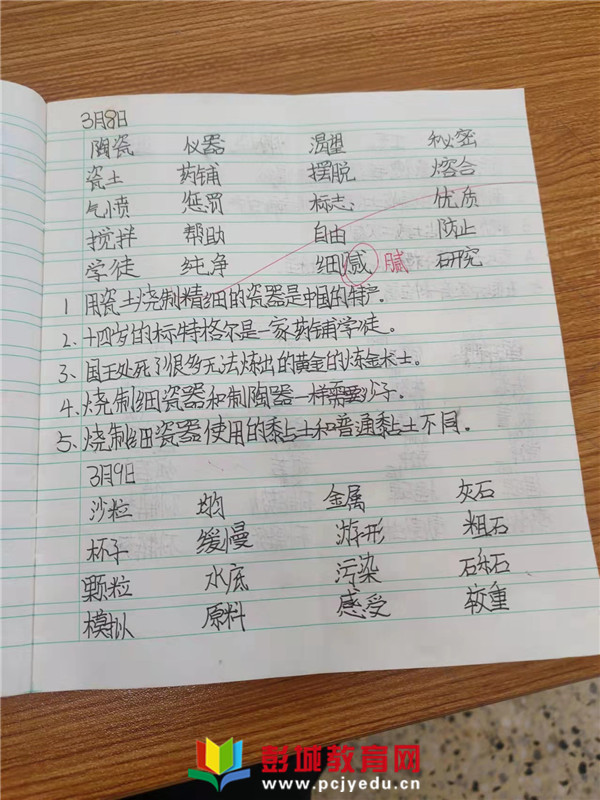 3月8日
陶瓷 仪器 温型 秘密
瓷土 药铺 摆脱 熔合
气愤 惩罚 标志 优质
搅拌 帮助 自由 防止
学徒 纯净 细 腻 研究
1 用瓷土烧制精细的瓷器是中国的特产。
2、十四岁的标特格尔是一家药铺学徒。
3、国王处死了很多无法炼出的黄金的炼金术士。
4、烧制细瓷器和制陶器一样需要沙子。
5、烧制细瓷器使用的黏土和普通黏土不同。
3月9日
沙粒 均匀 金属 灰石
杯子 缓慢 游形 粗石
颗粒 水底 污染 砾石
模拟 原料 感受 较重
彭城教育网
www.pcjyedu.cn